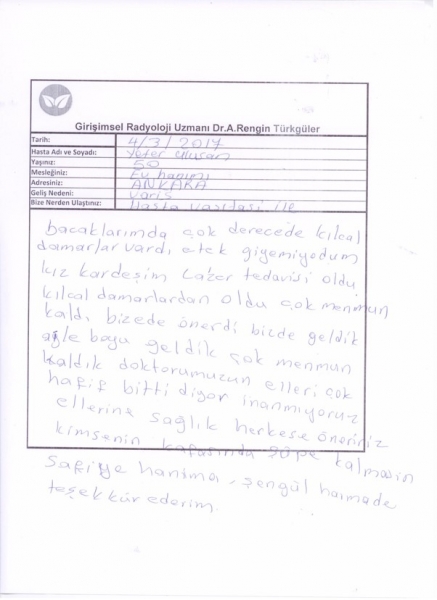 Girişimsel Radyoloji Uzmanı Dr.A.Rengin Türkgüler
Tarih: 4/3/2017
Hasta Adı ve Soyadı: Yeter Ulusan
Yaşınız: 50
Mesleğiniz: Ev hanımı
Adresiniz: ANKARA
Geliş Nedeni: varis
Bize Nerden Ulaştınız: Hasta vasıtası ile
bacaklarımda çok derecede kılcal
damarlar vardı, etek giyemiyodum
kız kardeşim Lazer tedavisi oldu
kılcal damarlardan oldu çok menmun
kaldı bizede önerdi bizde geldik
aile boyu geldik çok menmun
kaldık doktorumuzun elleri çok
hafif bitti diyor inanmıyoruz
ellerine sağlık herkese öneririz
kimsenin kafasında şüpe kalmasın
Safiye hanıma, şengül hanımade
teşekkür ederim.